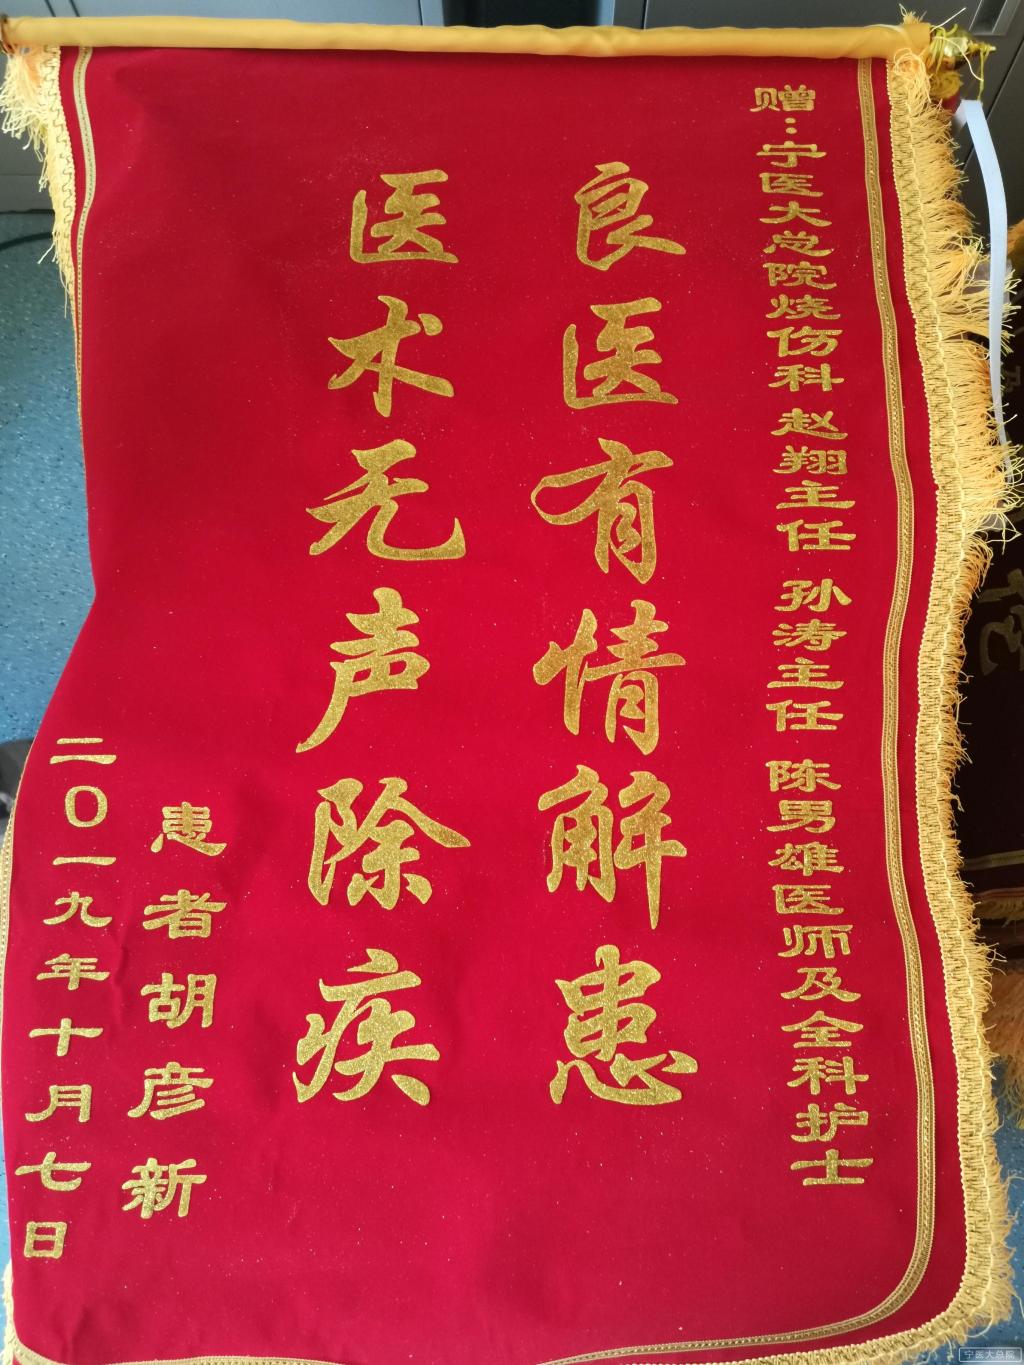 赠：宁医大总院烧伤科 赵翔主任 孙涛主任 陈男雄医师及全科护士
良医有情解患
医术无声除疾
患者胡彦新
二〇一九年十月七日
宁医大总院